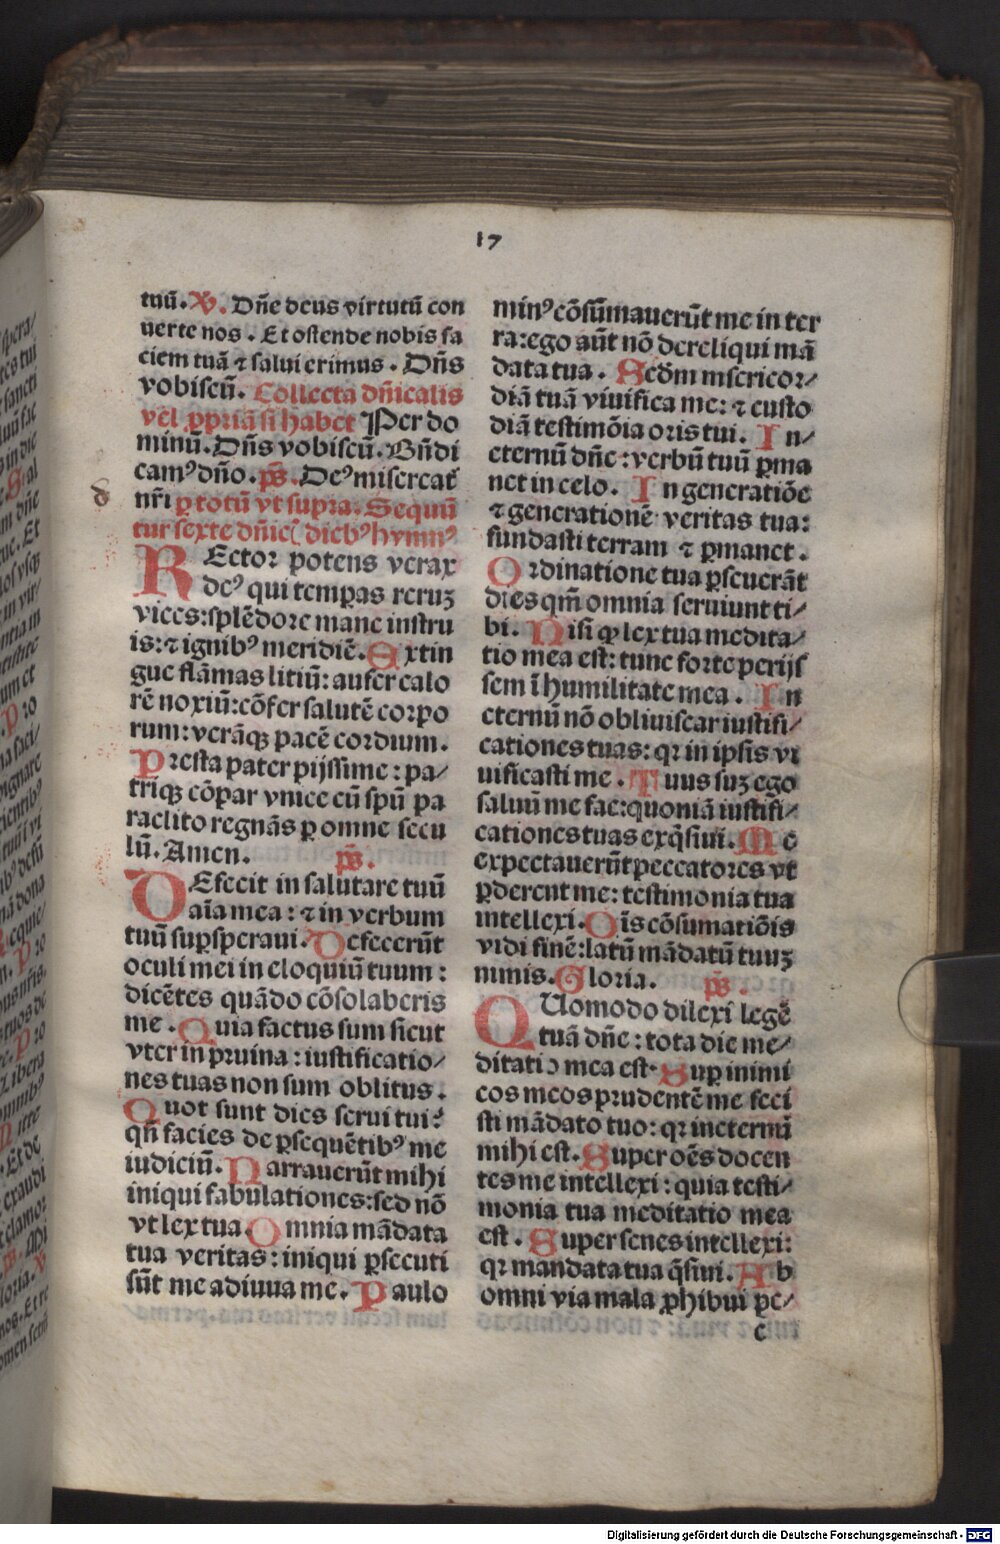 17
tuū. V. Dn̄e deus virtutū con
uerte nos . Et ostende nobis fa
ciem tuā ⁊ salui erimus . Dn̄s
vobiscū. Collecta dn̄icalis
vel ꝓpriā si habet Per do
minū. Dn̄s vobiscū. Bn̄di
camꝰ dn̄o. p̄s. Deꝰ misereat̄
nr̄i ꝑ totū vt supra. Sequū
tur sexte dn̄ic̄ diebꝰ hymnꝰ
REctor potens verax
deꝰ qui temꝑas reruꝫ
vices:splēdore mane instru
is:⁊ ignibꝰ meridiē. Extin
gue flāmas litiū: aufer calo
rē noxiū:cōfer salutē corpo
rum:verāqꝫ pacē cordium.
Presta pater pijssime : pa/
triqꝫ cōpar vnice cū spū pa
raclito regnās ꝑ omne secu
lū. Amen. p̄s.
DEfecit in salutare tuū
aīa mea : ⁊ in verbum
tuū suꝑsperaui. Defecerūt
oculi mei in eloquiū tuum :
dicētes quādo cōsolaberis
me . Quia factus sum sicut
vter in pruina : iustificatio/
nes tuas non sum oblitus.
Quot sunt dies serui tui:
qn̄ facies de ꝑsequētibꝰ me
iudiciū. Narrauerūt mihi
iniqui fabulationes:sed nō
vt lex tua. Omnia mādata
tua veritas : iniqui ꝑsecuti
sūt me adiuua me. Paulo
minꝰ cōsūmauerūt me in ter
ra:ego aūt nō dereliqui mā
data tua . Scdm misericor/
diā tuā viuifica me: ⁊ custo
diā testimōia oris tui. In/
eternū dn̄e :verbū tuū ꝑma
net in celo. In generatiōe
⁊ generationē veritas tua:
fundasti terram ⁊ ꝑmanet .
Ordinatione tua ꝑseuerāt
dies qm̄ omnia seruiunt ti/
bi. Nisi ꝙ lex tua medita/
tio mea est: tunc forte perijs
sem ī humilitate mea . In
eternū nō obliuiscar iustifi/
cationes tuas: qꝛ in ipsis vi
uificasti me . Tuus suꝫ ego
saluū me fac:quoniā iustifi/
cationes tuas exq̄siui. Me
expectauerūt peccatores vt
ꝑderent me: testimonia tua
intellexi. Oīs cōsumatiōis
vidi finē:latū mādatū tuuꝫ
nimis. Gloria. p̄s.
QUomodo dilexi legē
tuā dn̄e : tota die me/
ditatio mea est. Suꝑ inimi
cos meos prudentē me feci
sti mādato tuo: qꝛ ineternū
mihi est. Super oēs docen
tes me intellexi : quia testi/
monia tua meditatio mea
est . Super senes intellexi:
qꝛ mandata tua q̄siui. Ab
omni via mala ꝓhibui pe/
c
Digitalisierung gefördert durch die Deutsche Forschungsgemeinschaft - DFG